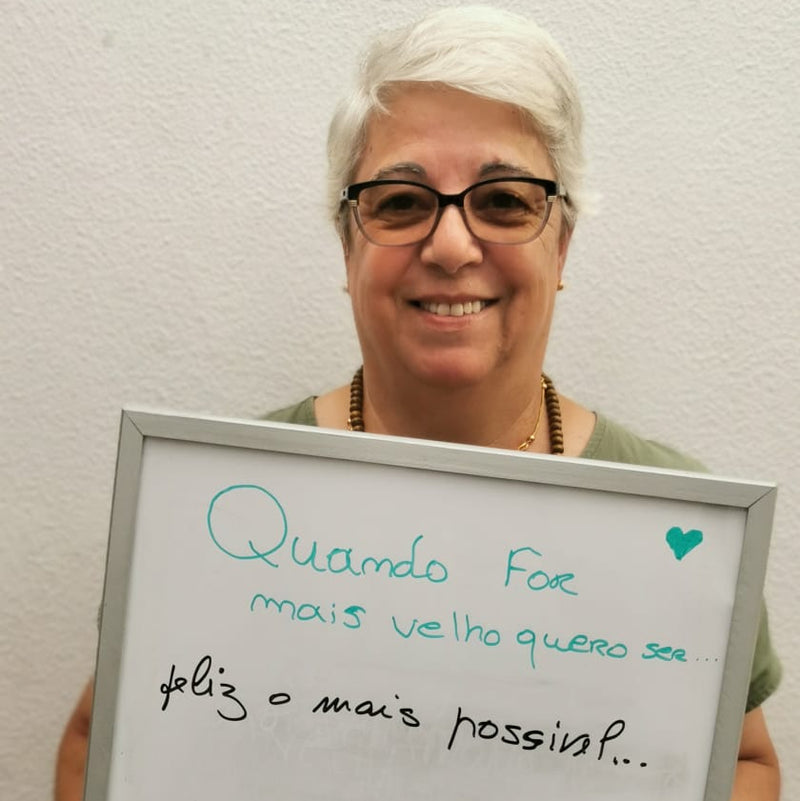 Quando For
mais velho quero ser...
feliz o mais possivel...